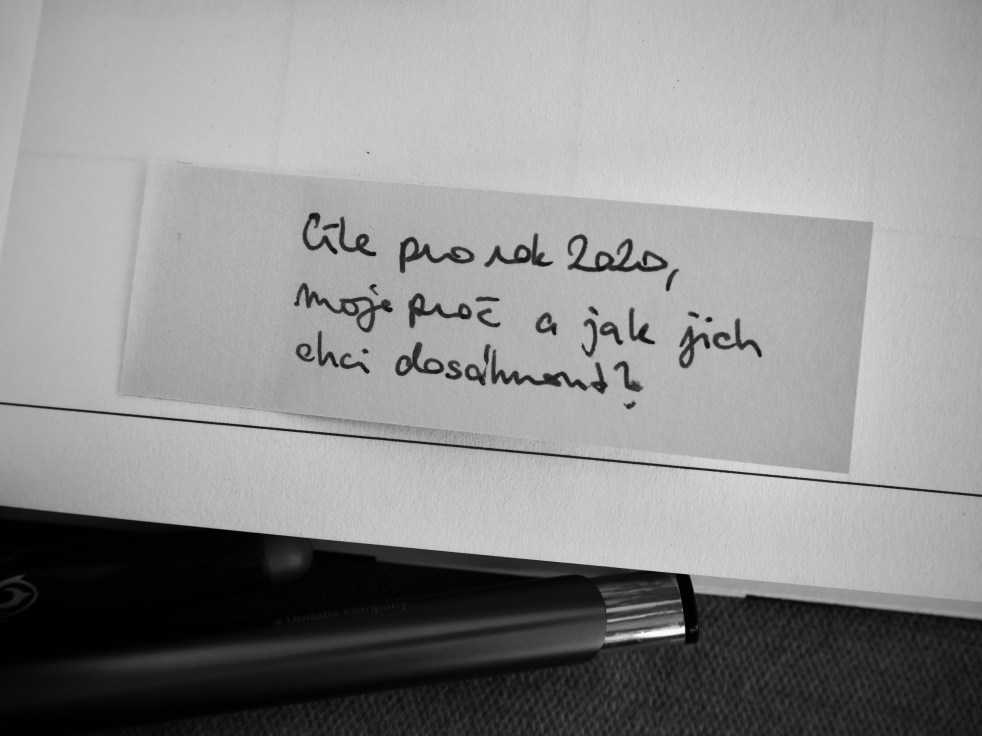 Cíle pro rok 2020,
moje proč a jak jich
chci dosáhnout?
a Unilabs company